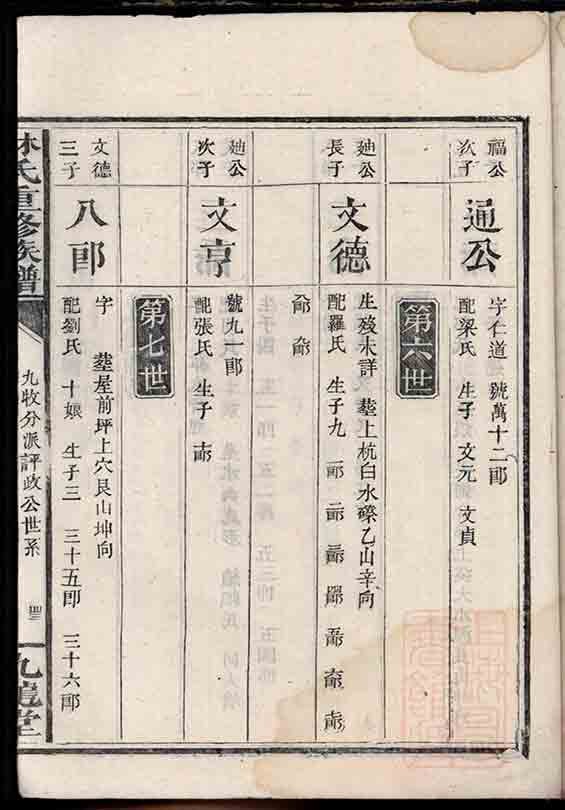 福公
次子
通公
字仁道 號萬十二郎
配梁氏 生子 文元 文貞
第六世
廸公
長子
文德
生殁未詳 塟上杭白水磜乙山辛向
配羅氏 生子九 一郎 二郎 三郎 四郎 五郎 六郎 七郎
八郎 九郎
廸公
次子
文亨
號九一郎
配張氏 生子 十郎
第七世
文德
三子
八郎
字 塟屋前坪上穴艮山坤向
配劉氏 十娘 生子三 三十五郎 三十六郎
林氏重修族譜
九牧分派評政公世系
九龍堂